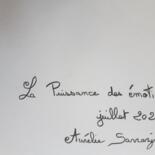 La Puissance des émoti
juillet 202
Aurélie